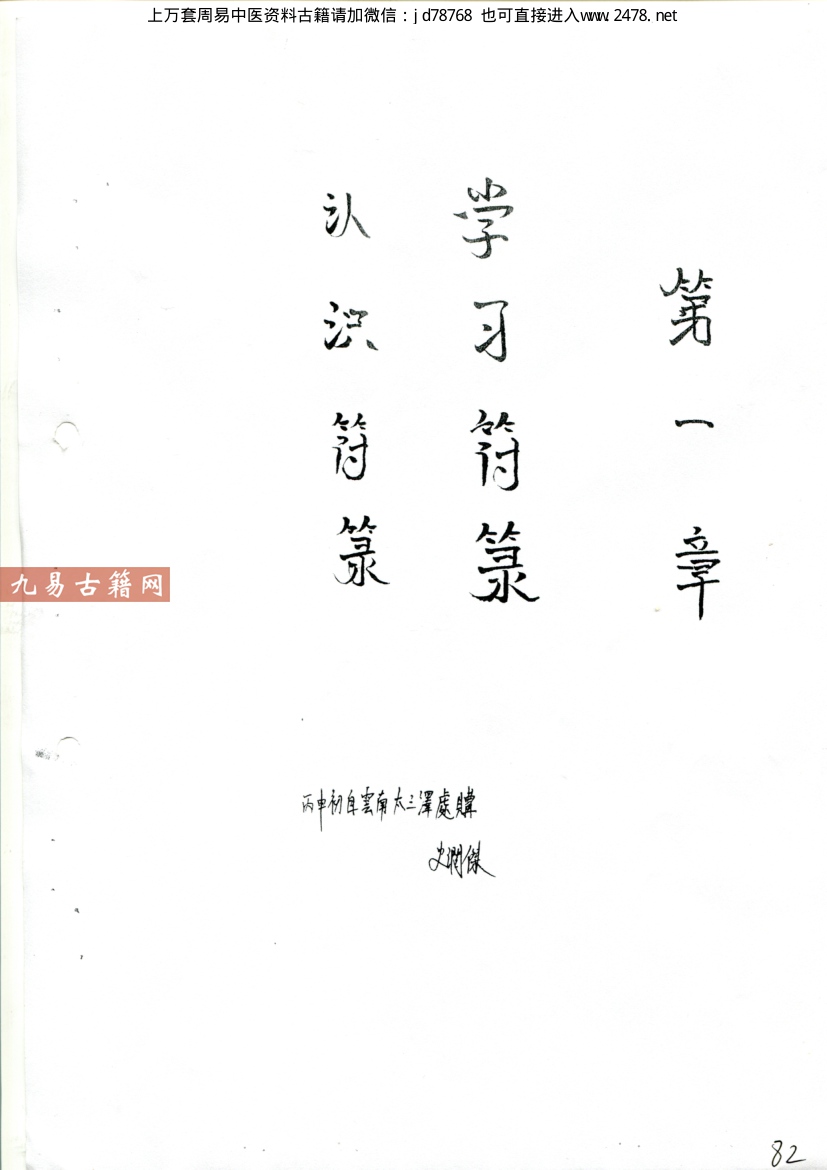 上万套周易中医资料古籍请加微信：jd78768 也可直接进入www.2478.net
第一章
学习符箓
认识符箓
九易古籍网
丙申初自雲南太三澤處購
史潤傑
82